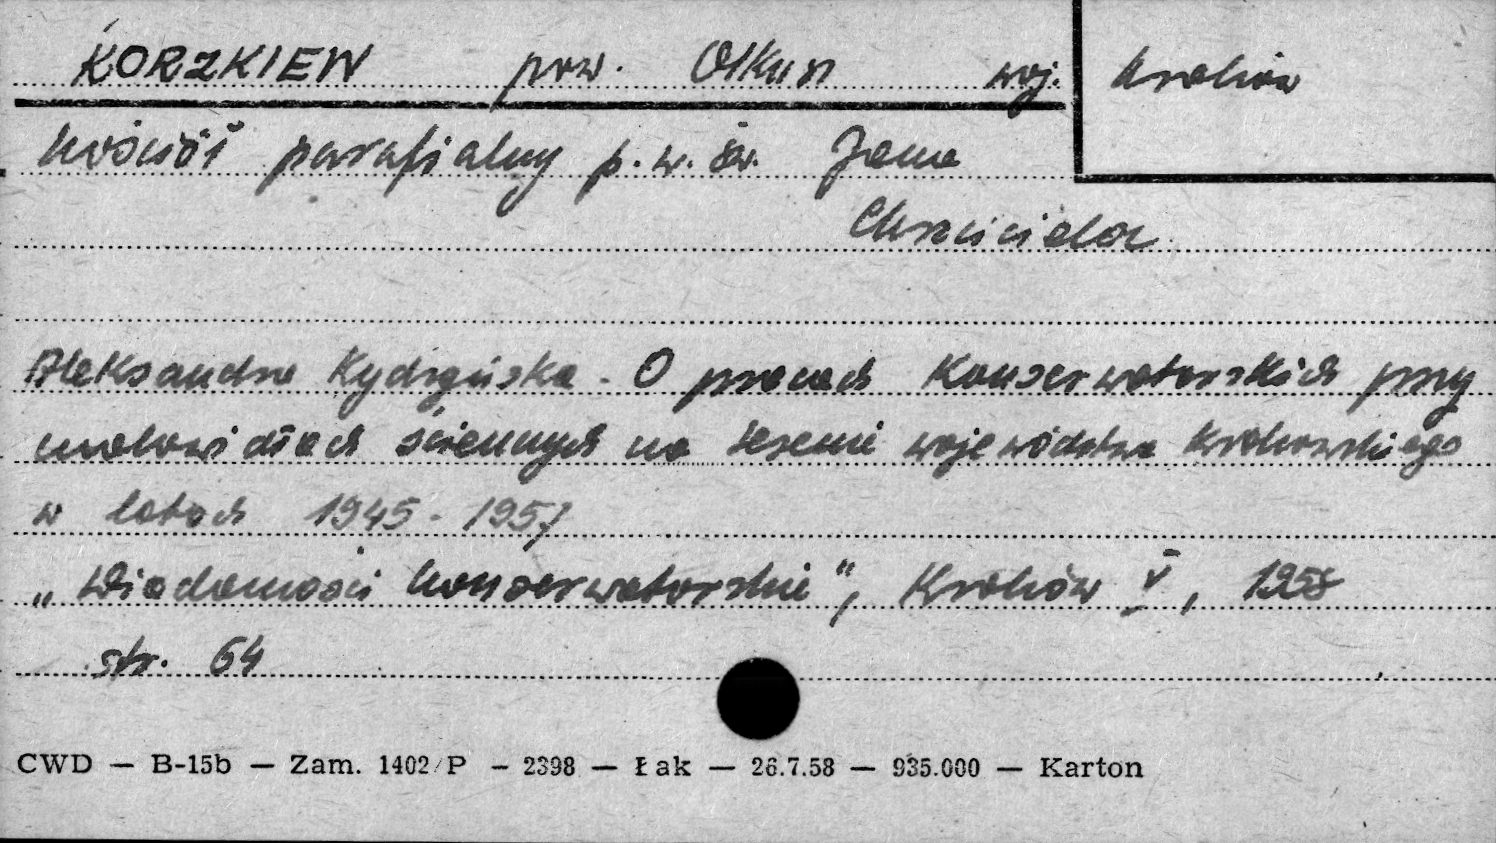 KORZKIEW pow. Olkusz woj. Kraków
kościół parafialny p.w. św. Jana
Chrzciciela
Aleksandra Kydryńska. O pracach konserwatorskich przy
malowidłach ściennych na terenie województwa krakowskiego
w latach 1945-1957
„Wiadomości konserwatorskie", Kraków V, 1958
str. 64
CWD — B-15b — Zam. 1402/P — 2398 — Łak — 26.7.58 — 935.000 — Karton